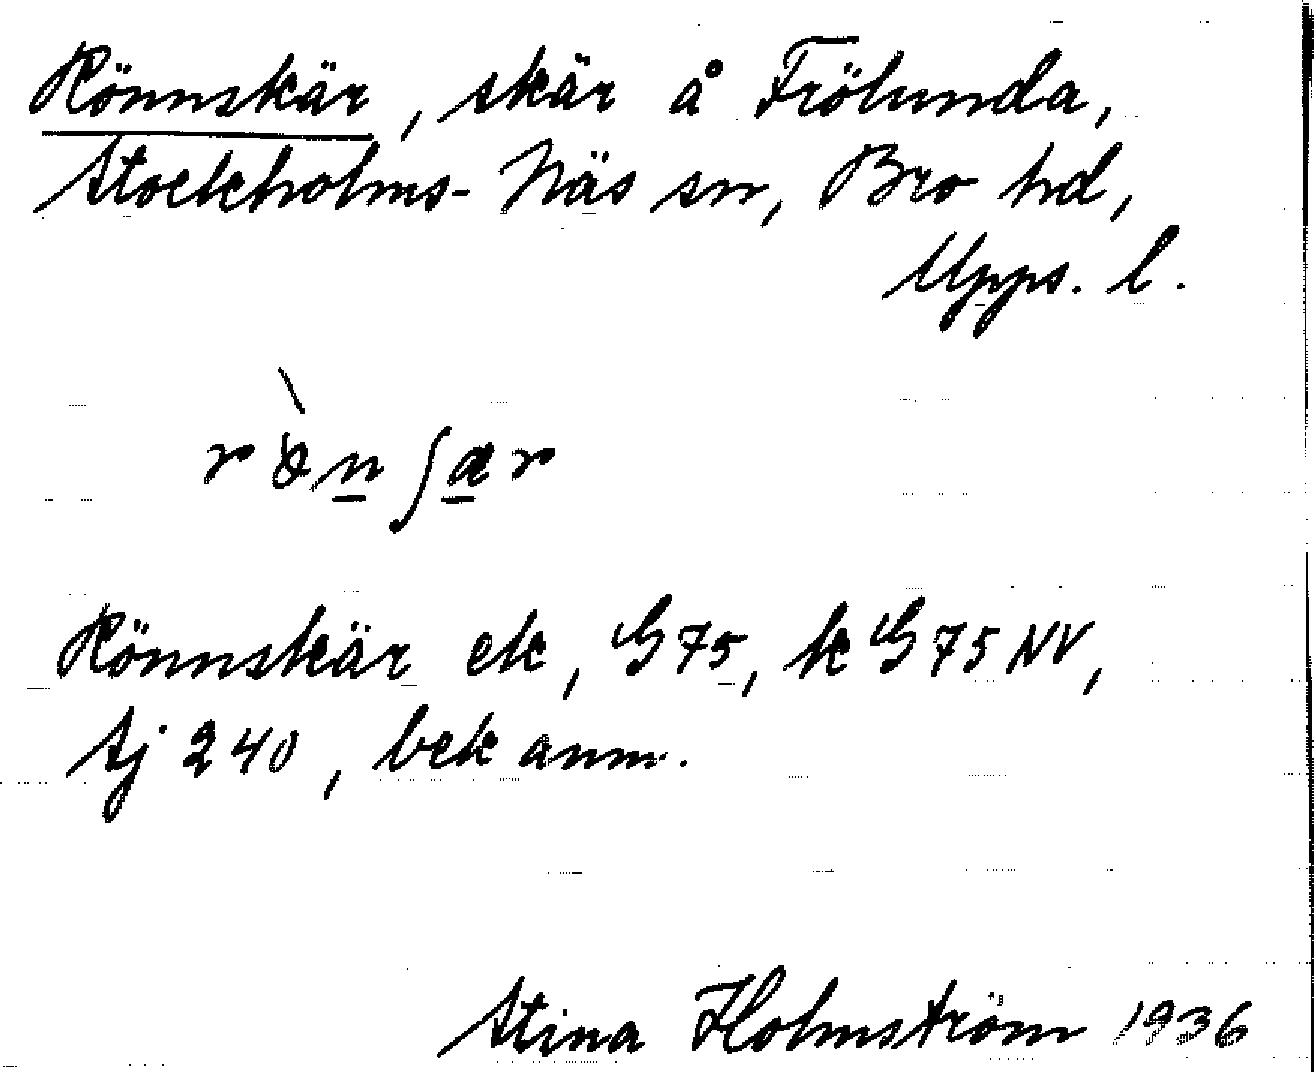 Rönnskär, skär å Frölunda,
Stockholms-Näs sn, Bro hd,
Upps. l.
rö̀nʃær
Rönnskär ek, G75, k G75 NV,
Sj 240, bek anm.
Stina Holmström 1936